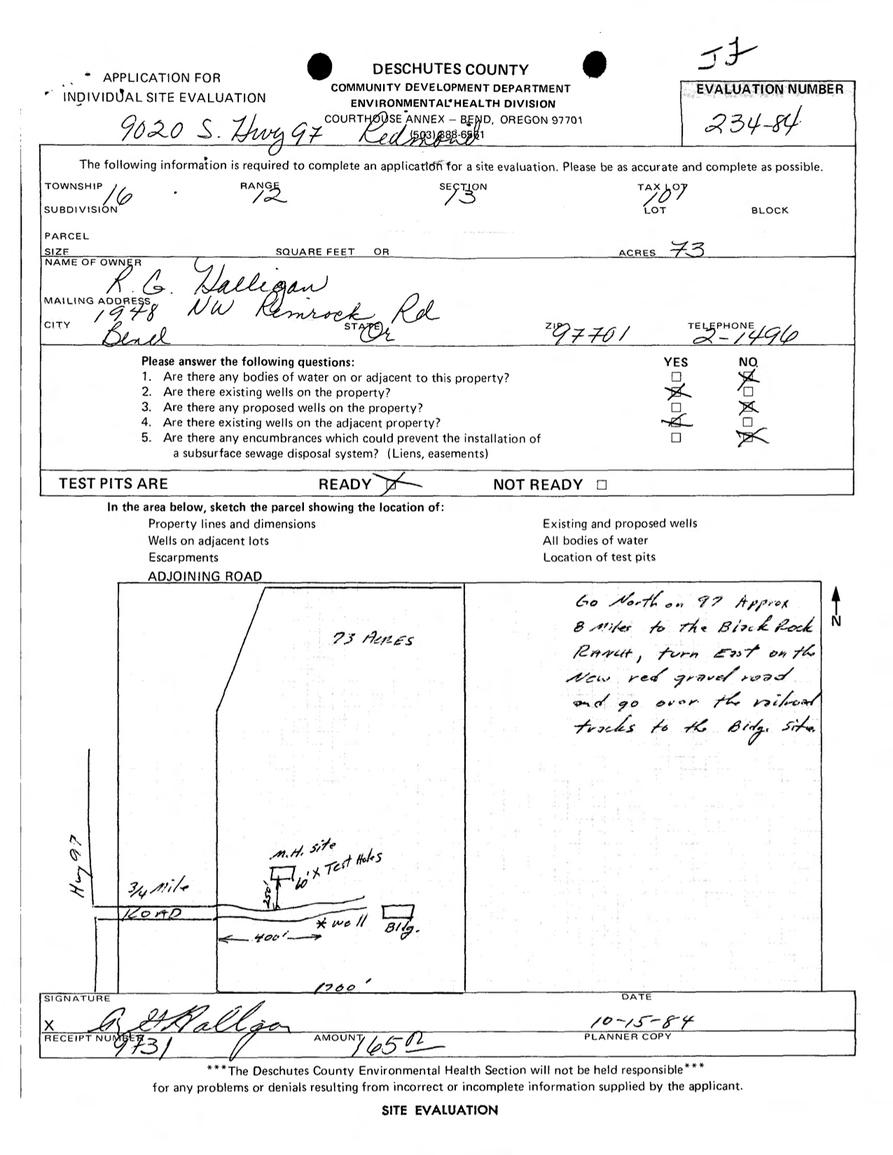 J F
APPLICATION FOR
INDIVIDUAL SITE EVALUATION
DESCHUTES COUNTY
COMMUNITY DEVELOPMENT DEPARTMENT
ENVIRONMENTAL HEALTH DIVISION
COURTHOUSE ANNEX – BEND, OREGON 97701
EVALUATION NUMBER
234-84
9020 S. Hwy 97 Redmond
The following information is required to complete an application for a site evaluation. Please be as accurate and complete as possible.
TOWNSHIP 16 RANGE 12 SECTION 13 TAX LOT 107
SUBDIVISION LOT BLOCK
PARCEL
SIZE SQUARE FEET OR ACRES 73
NAME OF OWNER
R. G. Halligan
MAILING ADDRESS 1948 NW Rimrock Rd
CITY Bend STATE Or ZIP 97701 TELEPHONE 2-1496
Please answer the following questions: YES NO
1. Are there any bodies of water on or adjacent to this property?
2. Are there existing wells on the property?
3. Are there any proposed wells on the property?
4. Are there existing wells on the adjacent property?
5. Are there any encumbrances which could prevent the installation of
a subsurface sewage disposal system? (Liens, easements)
TEST PITS ARE READY NOT READY
In the area below, sketch the parcel showing the location of:
Property lines and dimensions Existing and proposed wells
Wells on adjacent lots All bodies of water
Escarpments Location of test pits
ADJOINING ROAD
Go North on 97 Approx
8 Miles to the Black Rock
RANCH, turn East on the
New red gravel road
and go over the railroad
tracks to the Bldg. Site.
N
73 ACRES
Hwy 97
M.H. Site
60' X Test Holes
250'
3/4 Mile
ROAD
* well
Bldg.
400'
1760'
SIGNATURE DATE
X G Halligan 10-15-84
RECEIPT NUMBER 9731 AMOUNT 165 PLANNER COPY
***The Deschutes County Environmental Health Section will not be held responsible***
for any problems or denials resulting from incorrect or incomplete information supplied by the applicant.
SITE EVALUATION